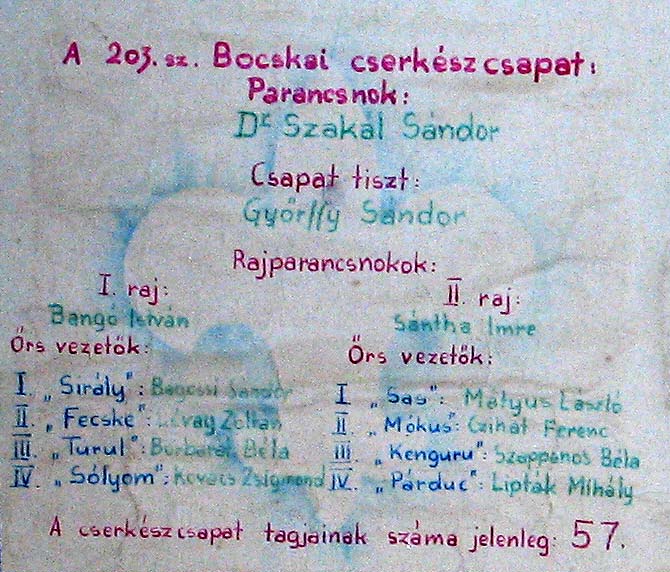 A 203. sz. Bocskai cserkész csapat:
Parancsnok:
Dr Szakál Sándor
Csapat tiszt:
Györffy Sándor
Rajparancsnokok:
I. raj:
Bangó István
Őrs vezetők:
I. „Sirály": Sándor
II. „Fecske": Lévay Zoltán
III. „Turul": Béla
IV. „Sólyom": Kovács Zsigmond
II. raj:
Sántha Imre
Őrs vezetők:
I „Sas": Mátyus László
II „Mókus": Czihát Ferenc
III „Kenguru": Szappanos Béla
IV. „Párduc": Lipták Mihály
A cserkész csapat tagjainak száma jelenleg: 57.